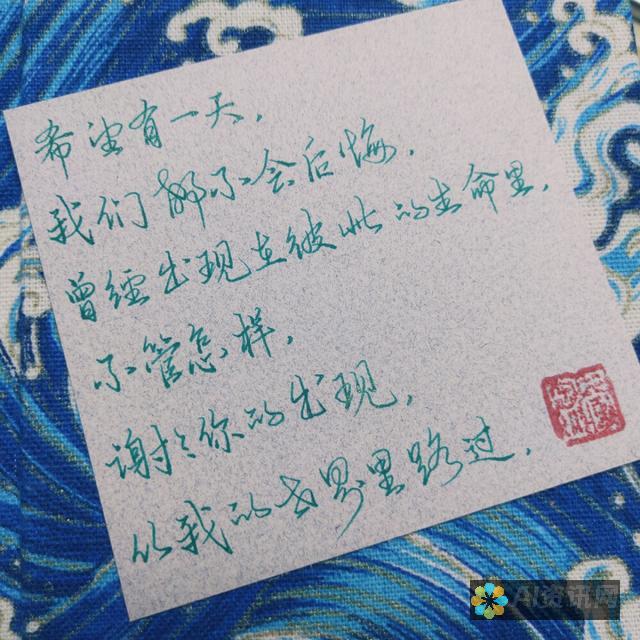 希望有一天，
我们都不会后悔，
曾经出现在彼此的生命里，
不管怎样，
谢谢你的出现，
从我的世界里路过．
AI资讯网